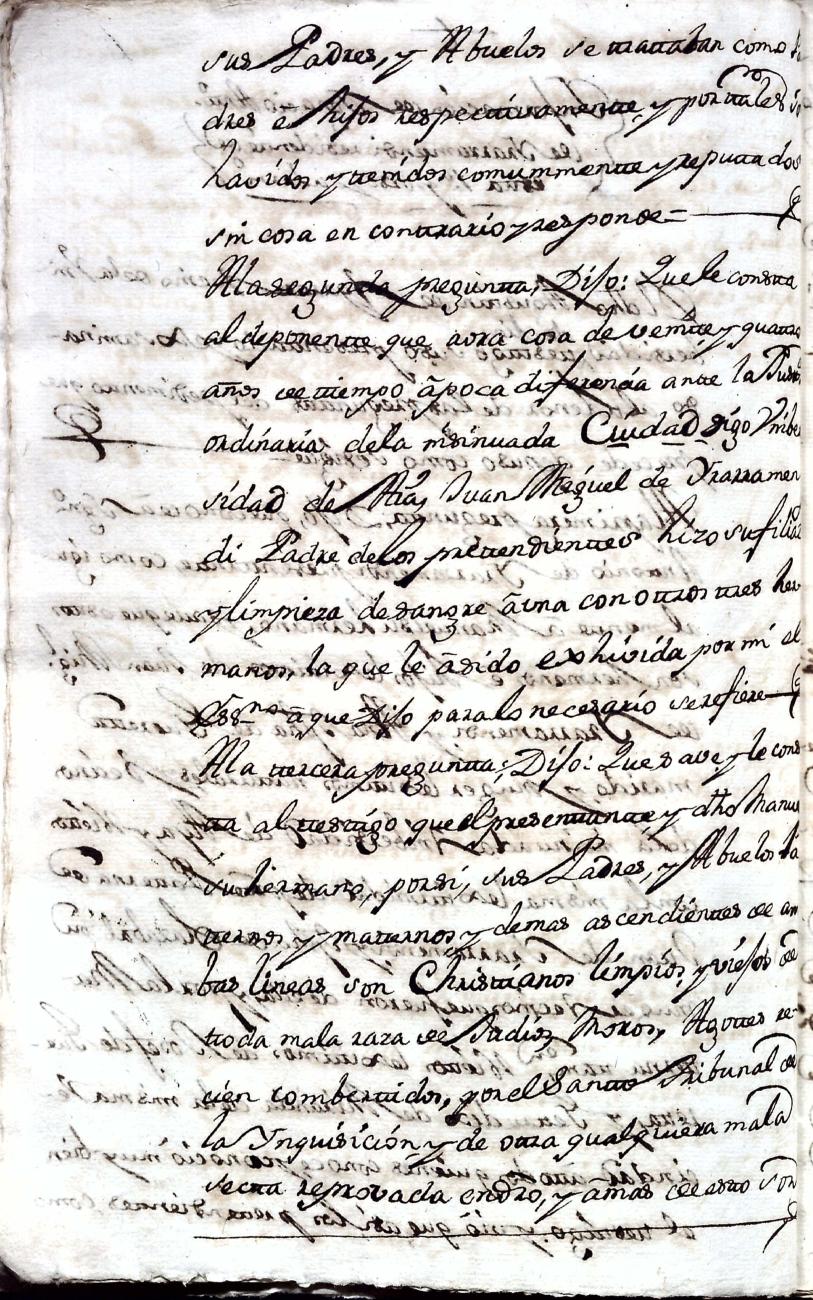 sus Padres, y Abuelos se trattaban como Pa
dres e hijos respecttivamentte, y portales
havidos y ttenidos comunmentte y reputtados
sin cosa en conttrario y responde=
Ala segunda preguntta, Dijo: Que le constta
al deponentte que aora cosa de veintte y quattro
años de ttiempo ā poca diferencia ante la Justi
ordinaria de la insinuada Ciudad digo Unibe
sidad de Juan Miguel de Yrarramen
di Padre de los prettendienttes hizo su filia
y limpieza de sangre ā una con ottros ttres her
manos, la que le ā sido exhivida por mi el
Essno ā que dijo para lo necesario se refiere
Ala ttercera preguntta; Dijo: Que save y le cons
tta al ttesttigo que el presenttantte y dho Manu
su hermano, por si, sus Padres, y Abuelos Pa
tternos y matternos y demas ascendienttes de am
bas lineas son Christtianos limpios, y viejos de
ttoda mala raza de Judios, Moros, Agottes re
cien combertidos, por el Santto Tribunal de
la Ynquisición y de otra qualquiera mala
sectta reprovada en dro, y amas de estto son